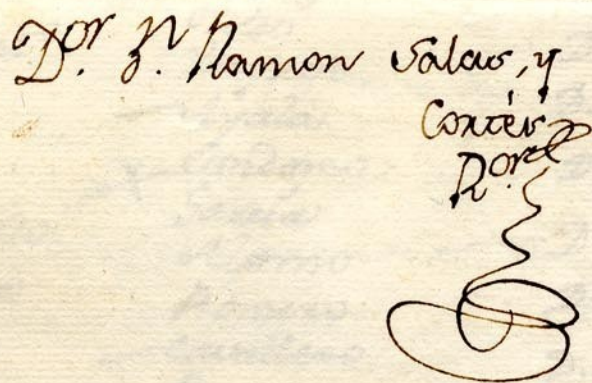 D.or D.n Ramon Salas, y
Cortés
R.or